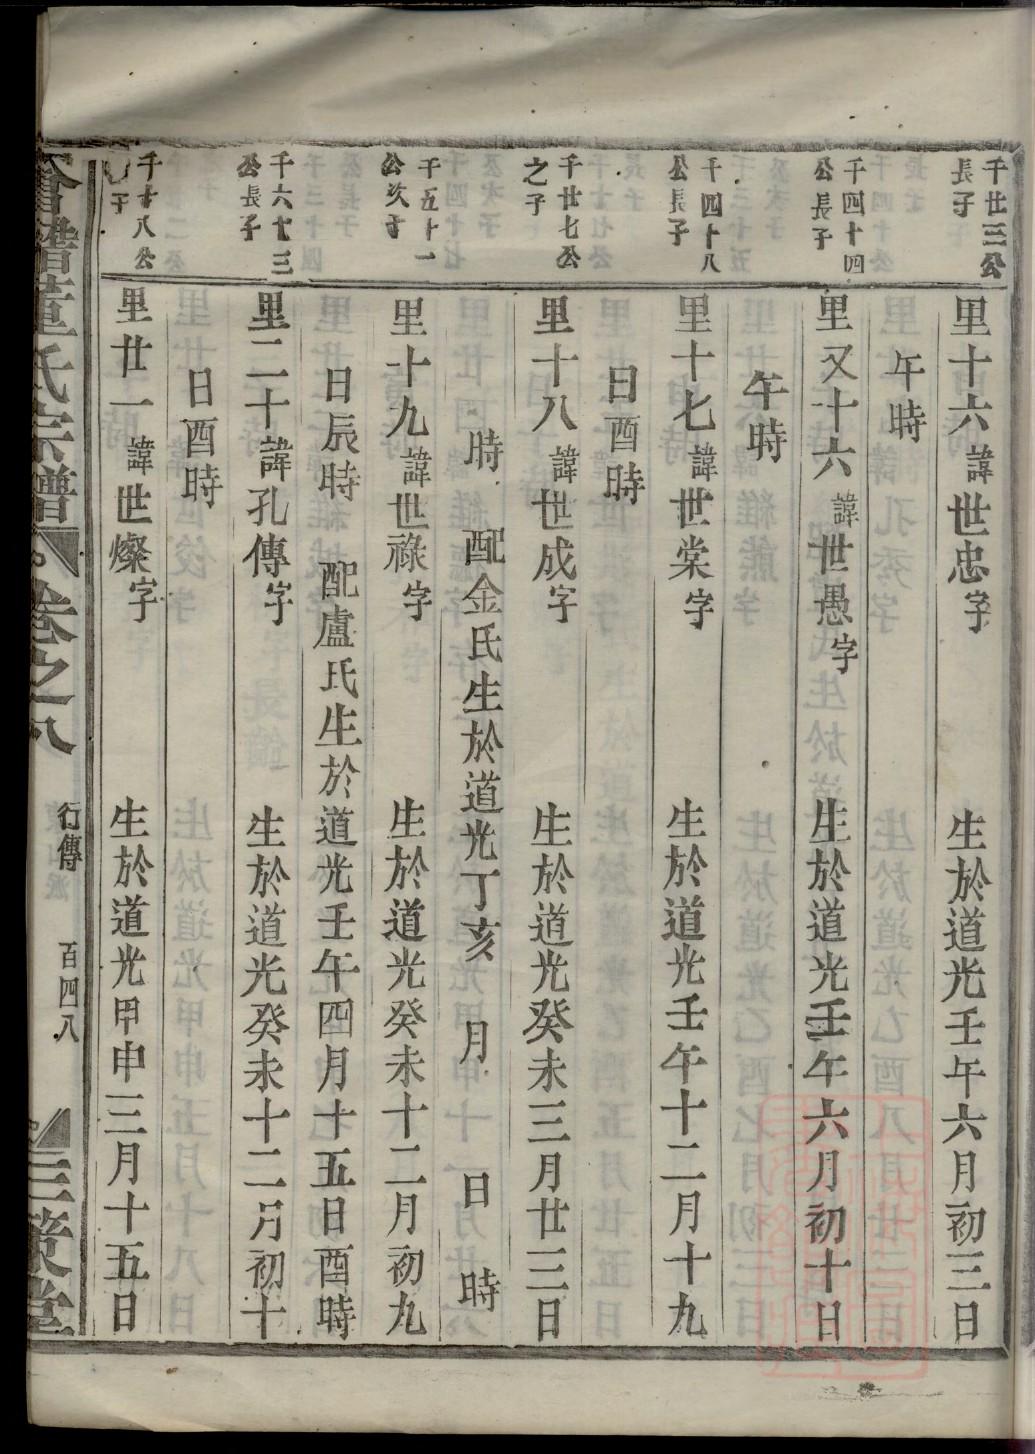 千廿三公
長子
里十六諱世忠字 生於道光壬午六月初三日
午時
千四十四
公長子
里又十六諱世愚字 生於道光壬午六月初十日
午時
千四十八
公長子
里十七諱世棠字 生於道光壬午十二月十九
日酉時
千廿七公
之子
里十八諱世成字 生於道光癸未三月廿三日
時 配金氏生於道光丁亥 月 日 時
千五十一
公次子
里十九諱世祿字 生於道光癸未十二月初九
日辰時 配盧氏生於道光壬午四月十五日酉時
千六十三
公長子
里二十諱孔傳字 生於道光癸未十二月初十
日酉時
千十八公
子
里廿一諱世燦字 生於道光甲申三月十五日
譜董氏宗譜 卷之八 行傳 百四八 三策堂